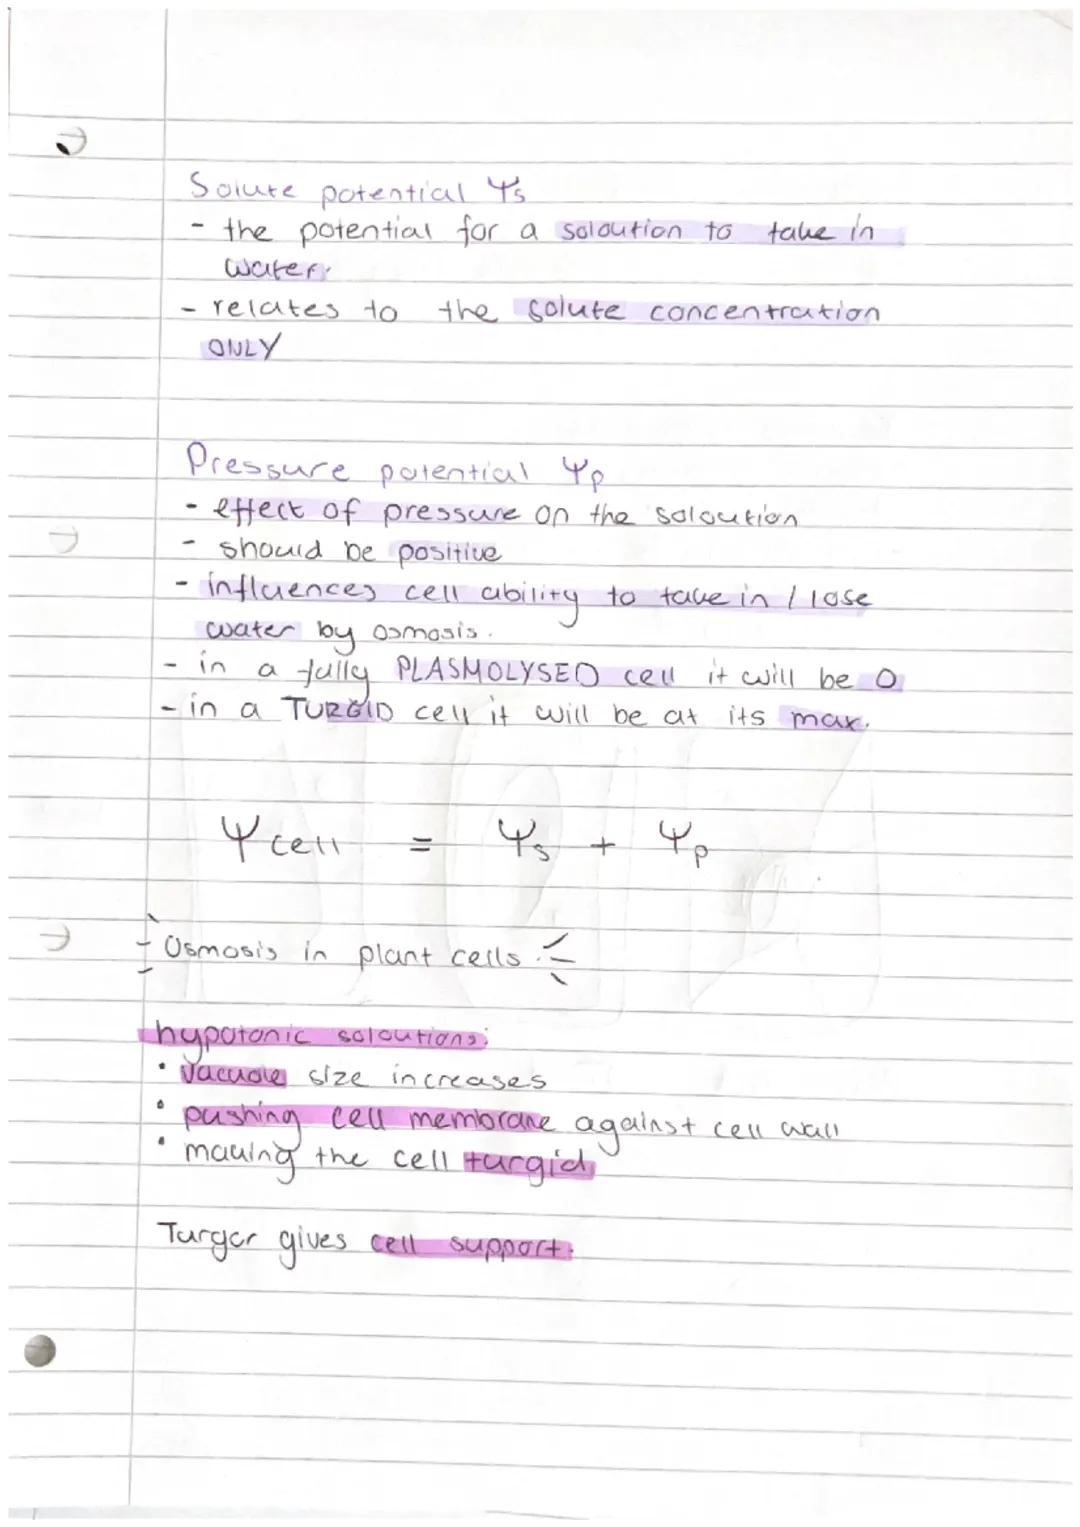 Solute potential Ψs
- the potential for a soloution to take in
water.
- relates to the solute concentration
ONLY
Pressure potential Ψp
- effect of pressure on the soloution
- should be positive
- influences cell ability to take in / lose
water by osmosis.
- in a fully PLASMOLYSED cell it will be 0
- in a TURGID cell it will be at its max.
Ψ cell = Ψs + Ψp
Osmosis in plant cells.
hypotonic soloutions:
• Vacuole size increases
• pushing cell membrane against cell wall
• making the cell turgid
Turgor gives cell support.